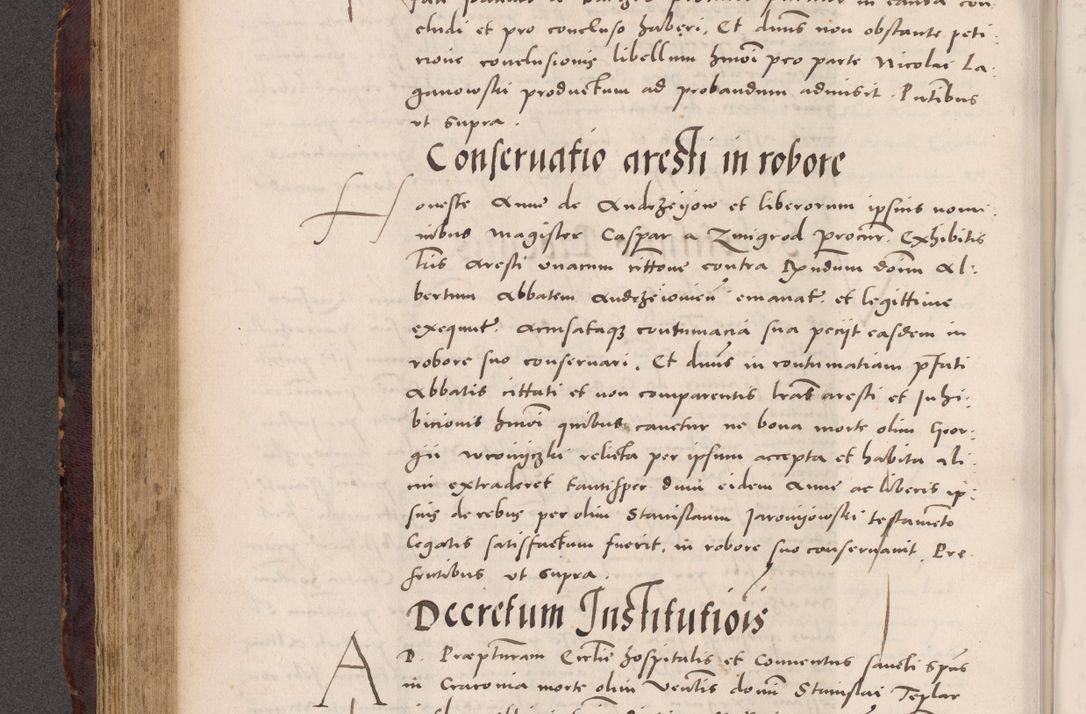 cludi et pro concluso haberi. Et dnus non obstante peti:
cione conclusionis libellum hmoi pro parte Nicolai La:
ganowski productum ad probandum admisit. Pntibus
ut supra.
Conservatio aresti in robore
Honeste Anne de Andrzeijow et liberorum ipsius nomi:
nibus Magister Caspar a Zmigrod procur. Exhibitis
lris aresti unacum cittone contra Rndum dom Al:
bertum Abbatem Andrzeiouien emanat. et legittime
exequut. accusataqz contumacia sua peciit easdem in
robore suo conservari. Et dnus in contumatiam pfati
Abbatis cittati et non comparentis lras aresti et Inhi:
bicionis hmoi quibus cavetur ne bona morte olim Geor:
gii relicta per ipsum accepta et habita ali
cui extraderet tantisper dum eidem Anne ac liberis ip:
sius de rebus per olim Stanislaum Jaronijowski testameto
legatis satisfactum fuerit, in robore suo conservavit. Pre
sentibus ut supra.
Decretum Institutiois
AD Praepturam Ecclie hospitalis et Conventus sancti Spus
in Cracovia morte olim Ventlis domi Stanislai Teplar